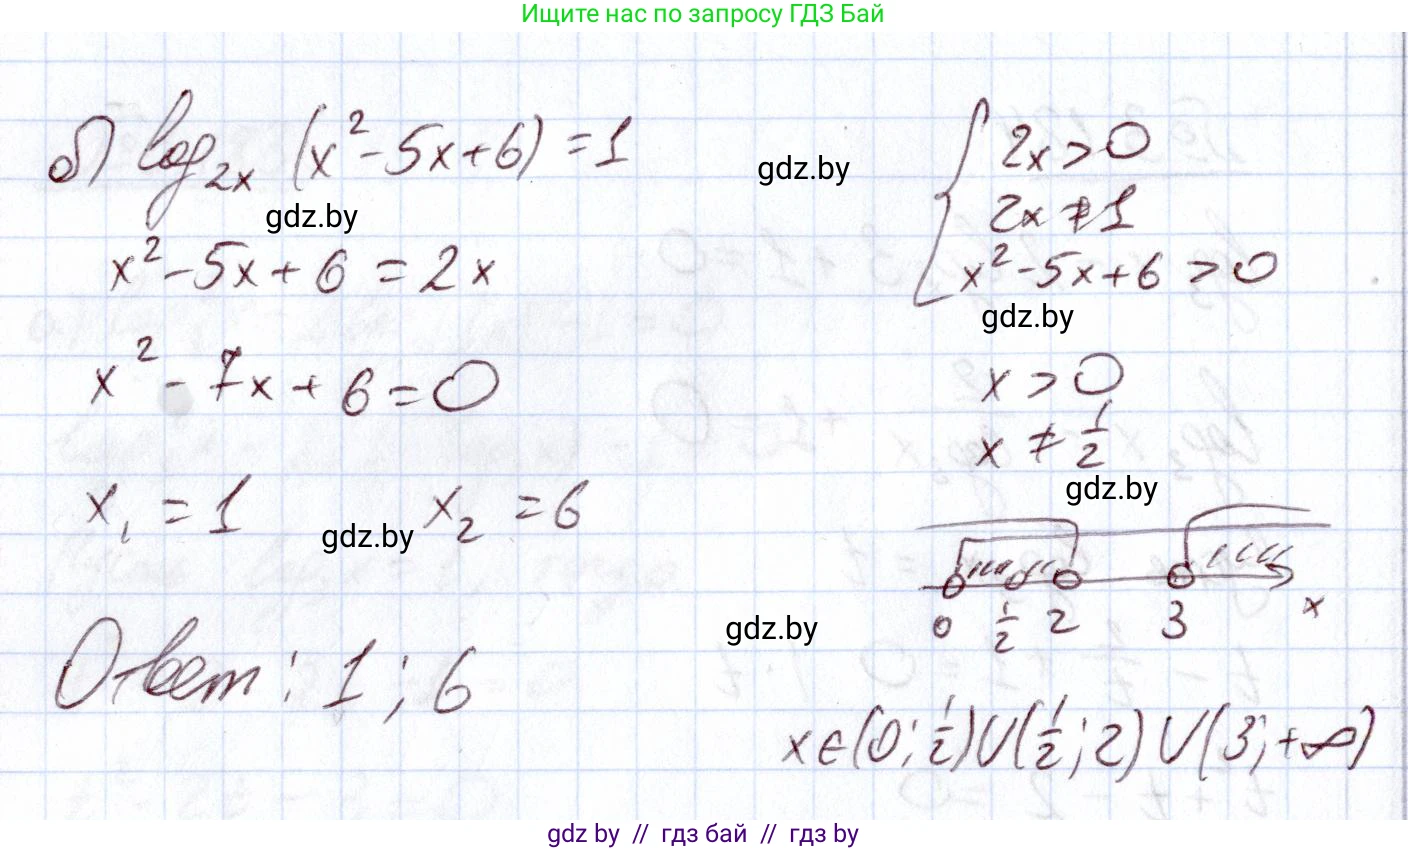 Ищите нас по запросу ГДЗ Бай
б) log₂ₓ (x² - 5x + 6) = 1
gdz.by
x² - 5x + 6 = 2x
x² - 7x + 6 = 0
x₁ = 1 x₂ = 6
gdz.by
Ответ: 1; 6
gdz.by
2x > 0
2x ≠ 1
x² - 5x + 6 > 0
gdz.by
x > 0
x ≠ 1/2
gdz.by
0 1/2 2 3 x
gdz.by
x ∈ (0; 1/2) ∪ (1/2; 2) ∪ (3; +∞)
gdz by // гдз бай // гдз by